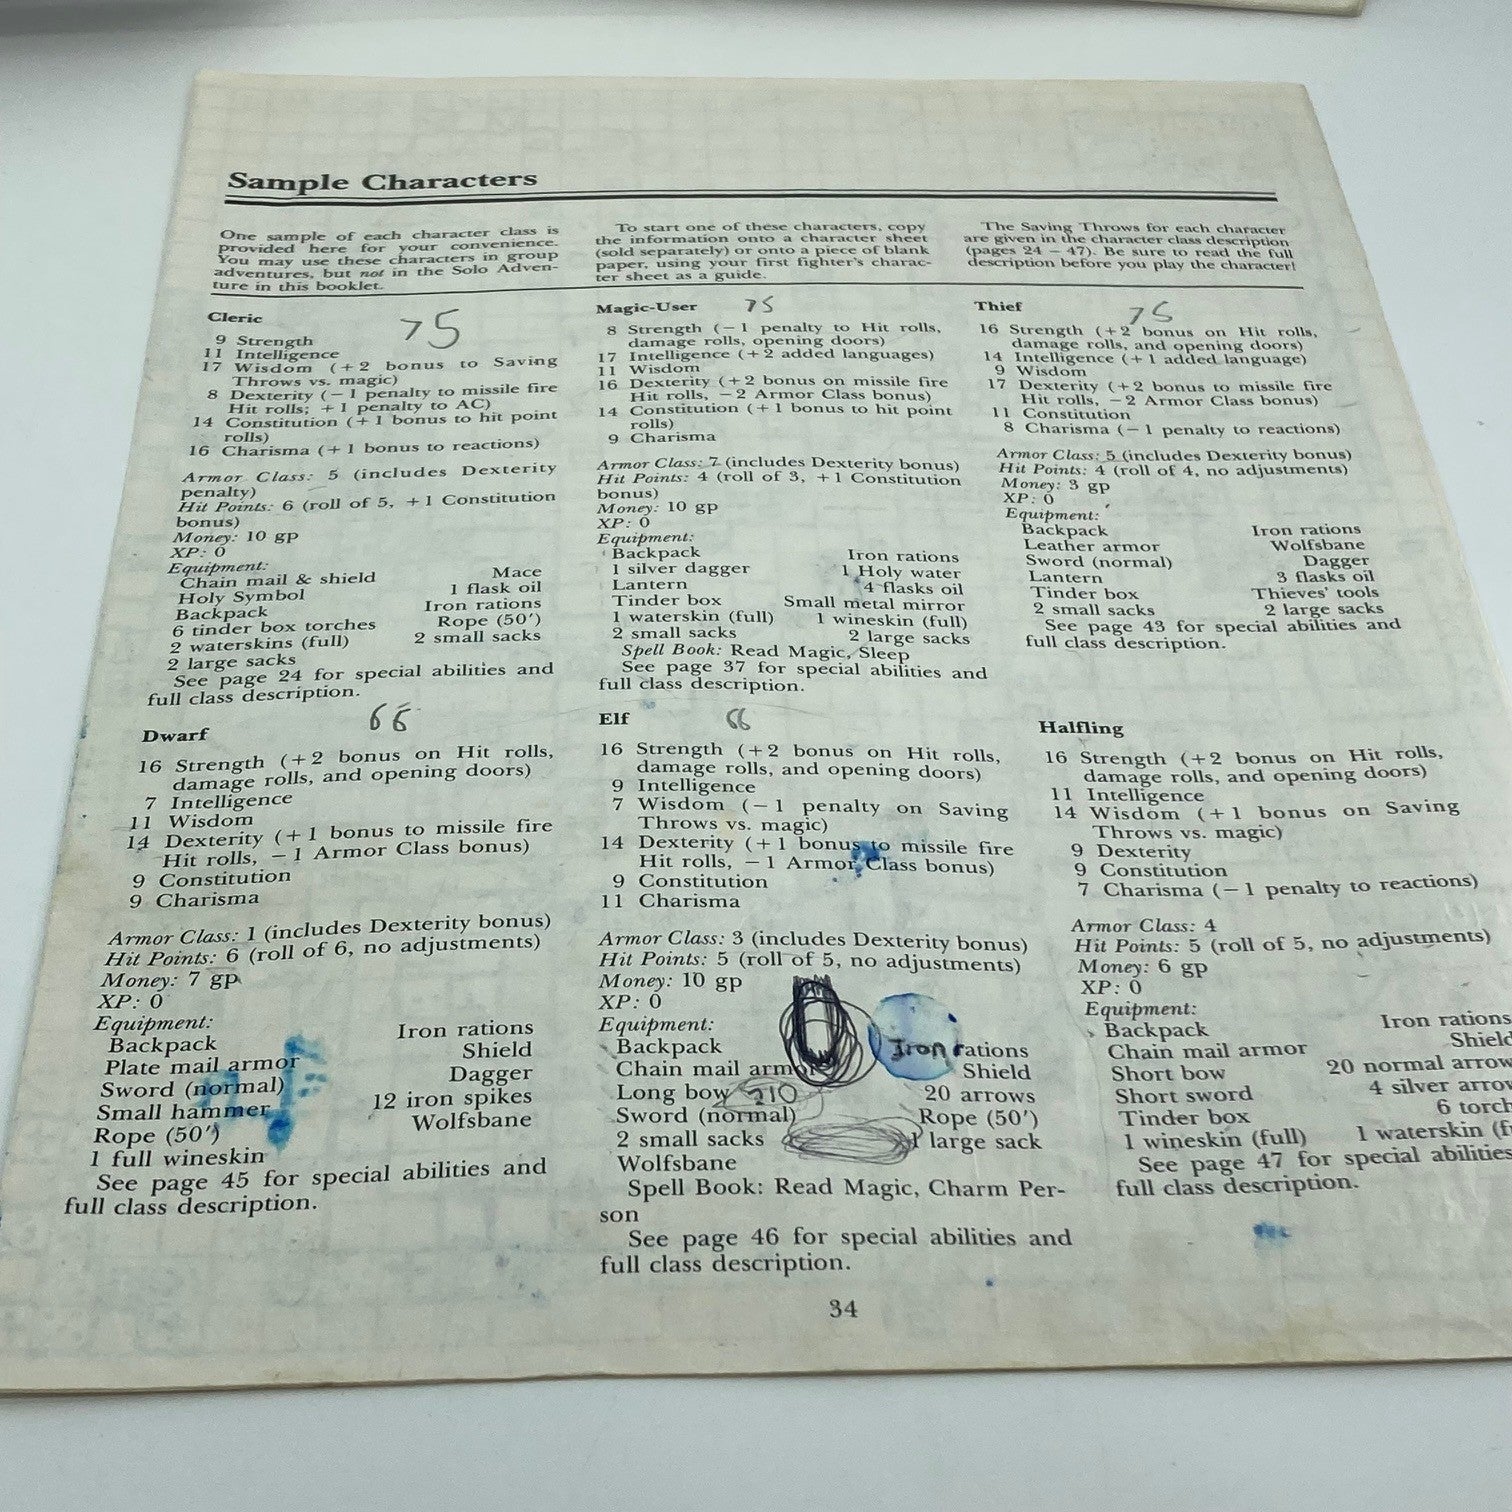 Sample Characters
One sample of each character class is
provided here for your convenience.
You may use these characters in group
adventures, but not in the Solo Adven-
ture in this booklet.
To start one of these characters, copy
the information onto a character sheet
(sold separately) or onto a piece of blank
paper, using your first fighter's charac-
ter sheet as a guide.
The Saving Throws for each character
are given in the character class description
(pages 24 – 47). Be sure to read the full
description before you play the character!
Cleric 75
9 Strength
11 Intelligence
17 Wisdom (+2 bonus to Saving
Throws vs. magic)
8 Dexterity (−1 penalty to missile fire
Hit rolls; +1 penalty to AC)
14 Constitution (+1 bonus to hit point
rolls)
16 Charisma (+1 bonus to reactions)
Armor Class: 5 (includes Dexterity
penalty)
Hit Points: 6 (roll of 5, +1 Constitution
bonus)
Money: 10 gp
XP: 0
Equipment:
Chain mail & shield Mace
Holy Symbol 1 flask oil
Backpack Iron rations
6 tinder box torches Rope (50')
2 waterskins (full) 2 small sacks
2 large sacks
See page 24 for special abilities and
full class description.
Magic-User 75
8 Strength (−1 penalty to Hit rolls,
damage rolls, opening doors)
17 Intelligence (+2 added languages)
11 Wisdom
16 Dexterity (+2 bonus on missile fire
Hit rolls, −2 Armor Class bonus)
14 Constitution (+1 bonus to hit point
rolls)
9 Charisma
Armor Class: 7 (includes Dexterity bonus)
Hit Points: 4 (roll of 3, +1 Constitution
bonus)
Money: 10 gp
XP: 0
Equipment:
Backpack Iron rations
1 silver dagger 1 Holy water
Lantern 4 flasks oil
Tinder box Small metal mirror
1 waterskin (full) 1 wineskin (full)
2 small sacks 2 large sacks
Spell Book: Read Magic, Sleep
See page 37 for special abilities and
full class description.
Thief 75
16 Strength (+2 bonus on Hit rolls,
damage rolls, and opening doors)
14 Intelligence (+1 added language)
9 Wisdom
17 Dexterity (+2 bonus to missile fire
Hit rolls, −2 Armor Class bonus)
11 Constitution
8 Charisma (−1 penalty to reactions)
Armor Class: 5 (includes Dexterity bonus)
Hit Points: 4 (roll of 4, no adjustments)
Money: 3 gp
XP: 0
Equipment:
Backpack Iron rations
Leather armor Wolfsbane
Sword (normal) Dagger
Lantern 3 flasks oil
Tinder box Thieves' tools
2 small sacks 2 large sacks
See page 43 for special abilities and
full class description.
Dwarf 66
16 Strength (+2 bonus on Hit rolls,
damage rolls, and opening doors)
7 Intelligence
11 Wisdom
14 Dexterity (+1 bonus to missile fire
Hit rolls, −1 Armor Class bonus)
9 Constitution
9 Charisma
Armor Class: 1 (includes Dexterity bonus)
Hit Points: 6 (roll of 6, no adjustments)
Money: 7 gp
XP: 0
Equipment:
Backpack Iron rations
Plate mail armor Shield
Sword (normal) Dagger
Small hammer 12 iron spikes
Rope (50') Wolfsbane
1 full wineskin
See page 45 for special abilities and
full class description.
Elf 66
16 Strength (+2 bonus on Hit rolls,
damage rolls, and opening doors)
9 Intelligence
7 Wisdom (−1 penalty on Saving
Throws vs. magic)
14 Dexterity (+1 bonus to missile fire
Hit rolls, −1 Armor Class bonus)
9 Constitution
11 Charisma
Armor Class: 3 (includes Dexterity bonus)
Hit Points: 5 (roll of 5, no adjustments)
Money: 10 gp
XP: 0
Equipment:
Backpack Iron rations
Chain mail armor Shield
Long bow 20 arrows
Sword (normal) Rope (50')
2 small sacks 1 large sack
Wolfsbane
Spell Book: Read Magic, Charm Per-
son
See page 46 for special abilities and
full class description.
Halfling
16 Strength (+2 bonus on Hit rolls,
damage rolls, and opening doors)
11 Intelligence
14 Wisdom (+1 bonus on Saving
Throws vs. magic)
9 Dexterity
9 Constitution
7 Charisma (−1 penalty to reactions)
Armor Class: 4
Hit Points: 5 (roll of 5, no adjustments)
Money: 6 gp
XP: 0
Equipment:
Backpack Iron rations
Chain mail armor Shield
Short bow 20 normal arrow
Short sword 4 silver arrow
Tinder box 6 torch
1 wineskin (full) 1 waterskin (f
See page 47 for special abilities
full class description.
34